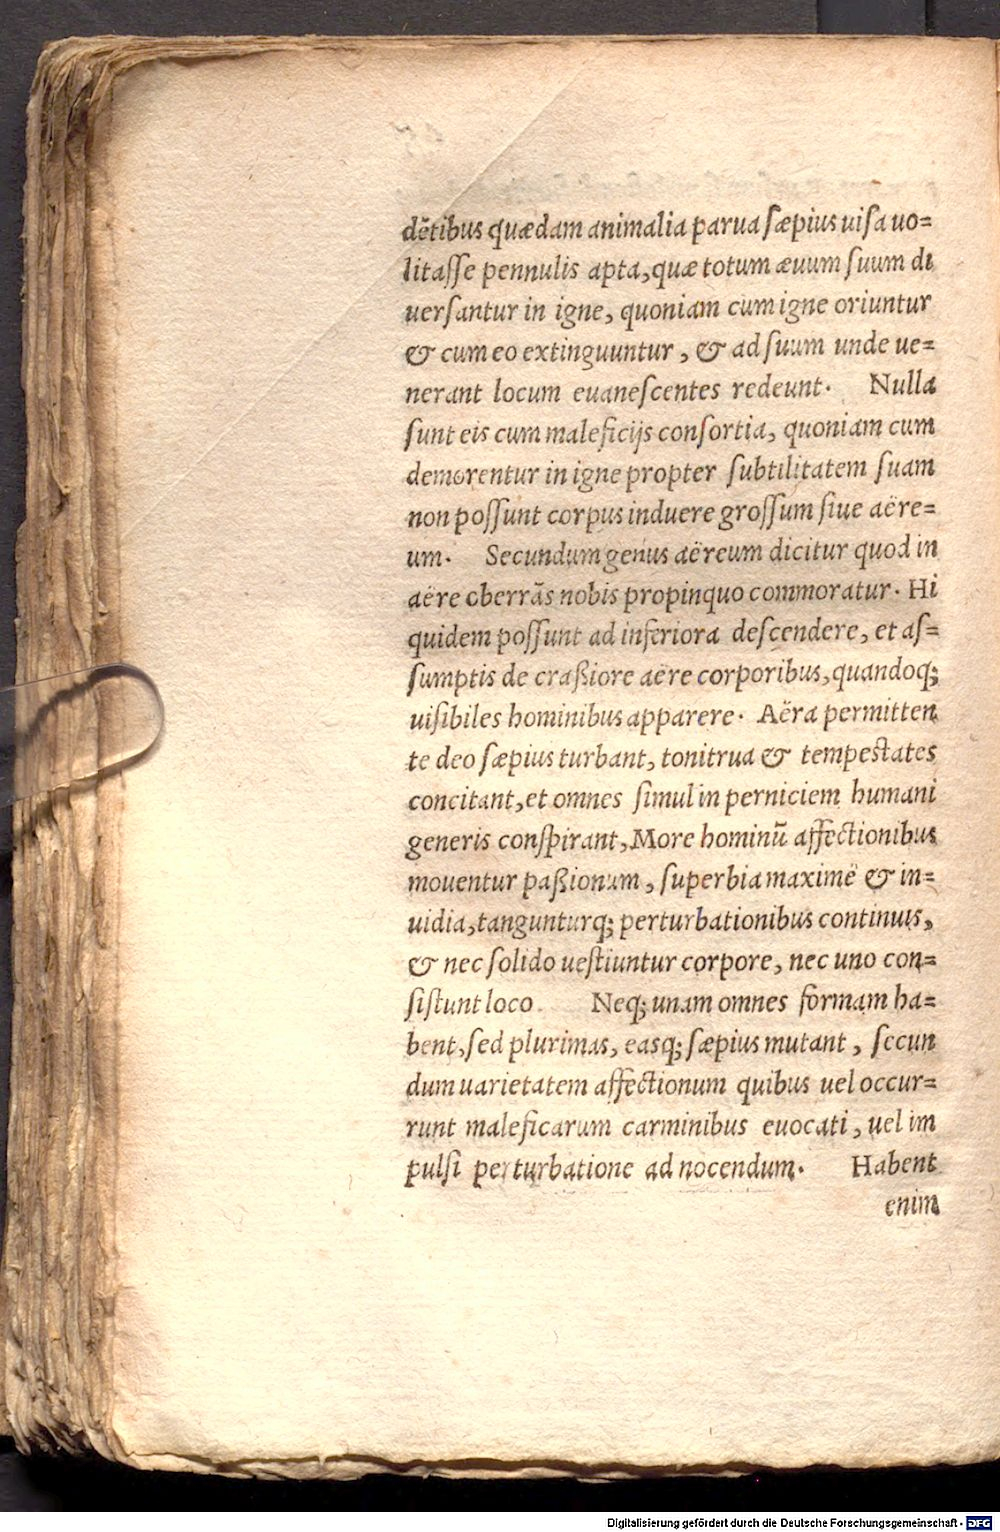 dẽtibus quædam animalia parua sæpius uisa uo=
litasse pennulis apta, quæ totum æuum suum di
uersantur in igne, quoniam cum igne oriuntur
& cum eo extinguuntur, & ad suum unde ue=
nerant locum euanescentes redeunt. Nulla
sunt eis cum maleficijs consortia, quoniam cum
demorentur in igne propter subtilitatem suam
non possunt corpus induere grossum siue aëre=
um. Secundum genus aëreum dicitur quod in
aëre oberrãs nobis propinquo commoratur. Hi
quidem possunt ad inferiora descendere, et as=
sumptis de craßiore aëre corporibus, quandoq;
uisibiles hominibus apparere. Aëra permitten
te deo sæpius turbant, tonitrua & tempestates
concitant, et omnes simul in perniciem humani
generis conspirant, More hominũ affectionibus
mouentur paßionum, superbia maximè & in=
uidia, tangunturq; perturbationibus continuis,
& nec solido uestiuntur corpore, nec uno con=
sistunt loco. Neq; unam omnes formam ha=
bent, sed plurimas, easq; sæpius mutant, secun
dum uarietatem affectionum quibus uel occur=
runt maleficarum carminibus euocati, uel im
pulsi perturbatione ad nocendum. Habent
enim
Digitalisierung gefördert durch die Deutsche Forschungsgemeinschaft - DFG